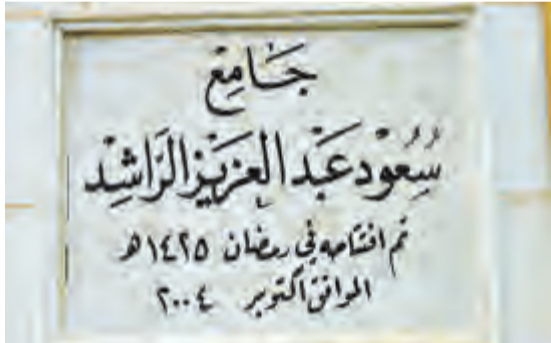 جَامِع
سُعُود عَبْد العَزيْز الرَّاشِد
تم افتتاحه في رمضان ١٤٢٥ هـ
الموافق اكتوبر ٢٠٠٤